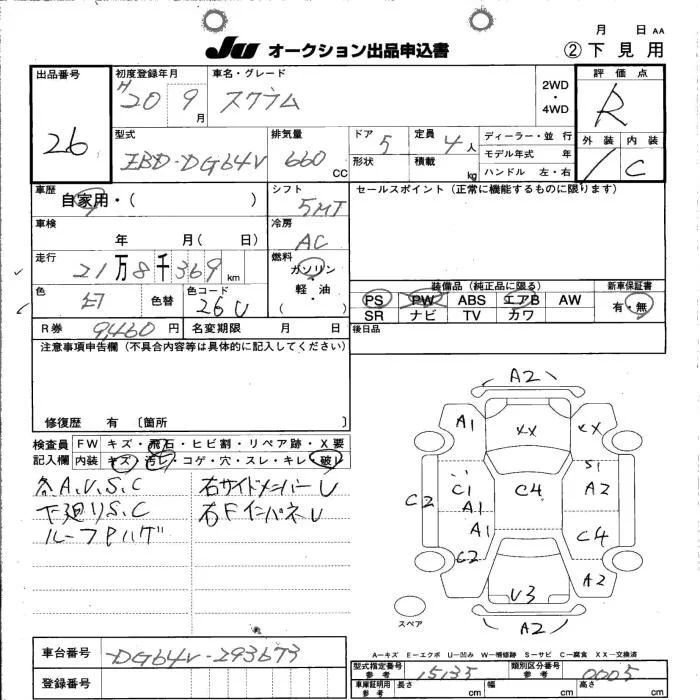 月 日 AA
JU オークション出品申込書 ②下見用
出品番号 26
初度登録年月 H20 9月
車名・グレード スクラム
2WD・4WD
評価点 R
外装 1 内装 C
型式 EBD-DG64V
排気量 660 CC
ドア 5 定員 4人
形状 積載 kg
ディーラー・並行
モデル年式 年
ハンドル 左・右
車歴 自家用・( )
シフト 5MT
セールスポイント(正常に機能するものに限ります)
車検 年 月( 日)
冷房 AC
走行 21万8千369km
燃料 ガソリン・軽油・( )
色 色替 色コード 26U
装備品(純正品に限る) 新車保証書
PS PW ABS エアB AW 有・無
SR ナビ TV カワ
R券 9460円 名変期限 月 日
後日品
注意事項申告欄(不具合内容等は具体的に記入してください)
修復歴 有 〔箇所 〕
検査員記入欄
FW キズ・飛石・ヒビ割・リペア跡・X要
内装 キズ・汚レ・コゲ・穴・スレ・キレ・破レ
各A.U.S.C 右サイドメンバーU
下廻りS.C 右FインパネU
ルーフPハゲ
A2
A1 XX XX
S1
C2 C1 C4 A2
A1
A1 C4
C2
U3 A2
A2
スペア
A-キズ E-エクボ U-凹み W-補修跡 S-サビ C-腐食 XX-交換済
車台番号 DG64V-293673
登録番号
型式指定番号 参考 15135 類別区分番号 参考 0005
車庫証明用 参考 長さ cm 幅 cm 高さ cm